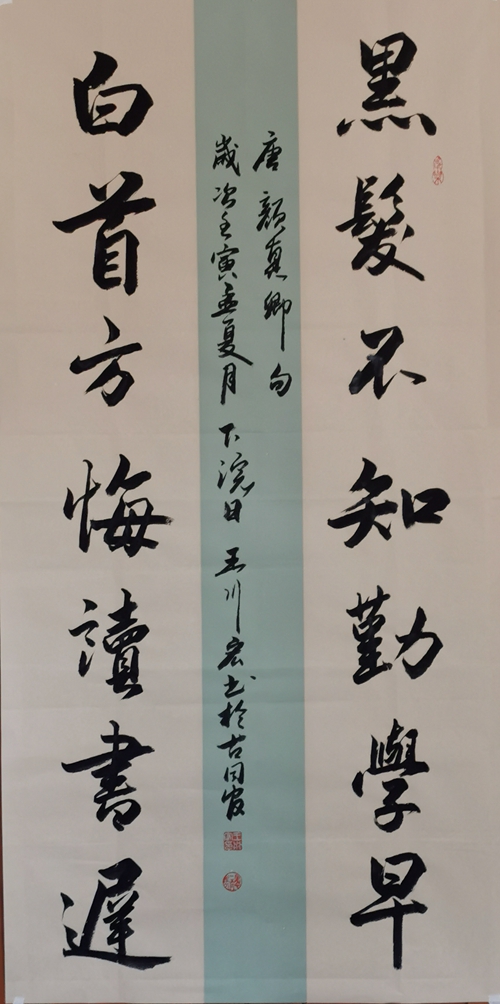 黑髮不知勤學早
白首方悔讀書遲
唐顏真卿句
歲次壬寅孟夏月下浣日王川宏書於古同官